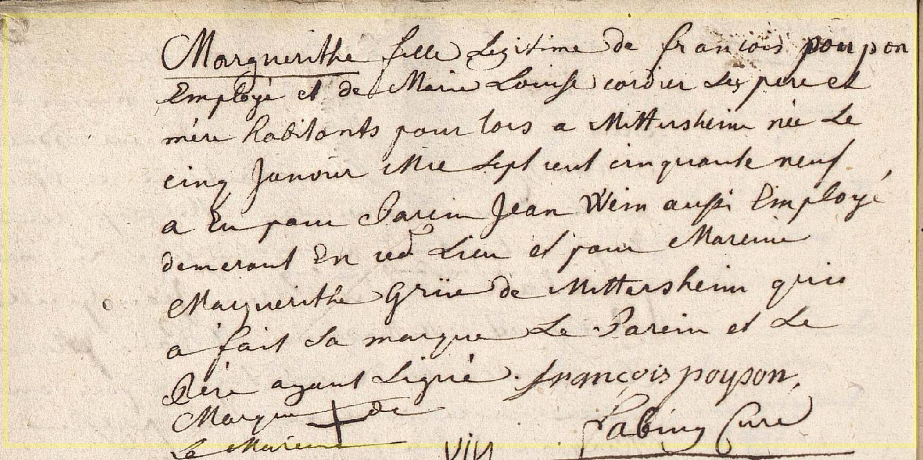 Marguerithe fille Legitime de francois pourpon
Employé et de Marie Louise cordier Ses pere et
mére habitants pour lors a Mittersheim née Le
cinq Janvier Mil Sept cent cinquante neuf
a Eu pour Parein Jean Wein aussi Employé
demerant En ced. Lieu et pour Mareine
Marguerithe Griie de Mittersheim qui
a fait Sa marque Le Parein et Le
Pére ayant Signé. françois poypon,
Marque + de
La Mareine Curé